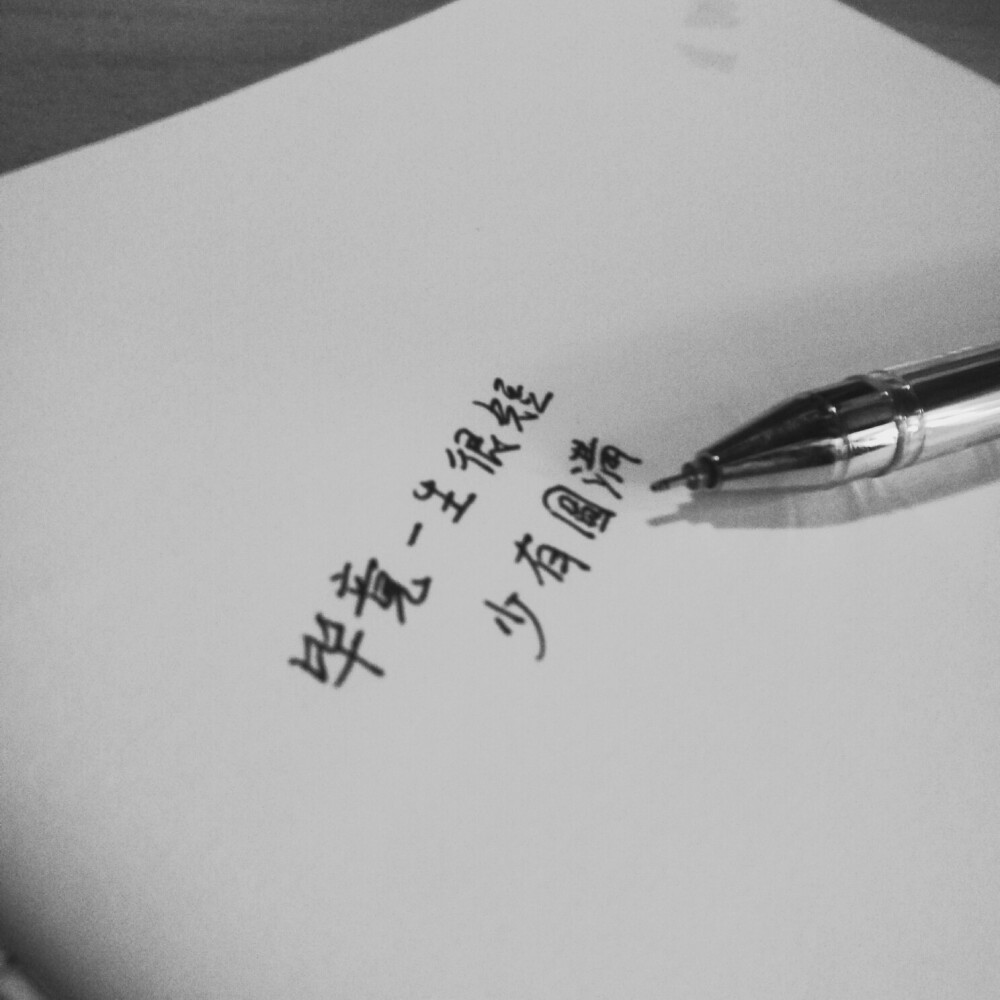 毕竟一生很短
少有圆满